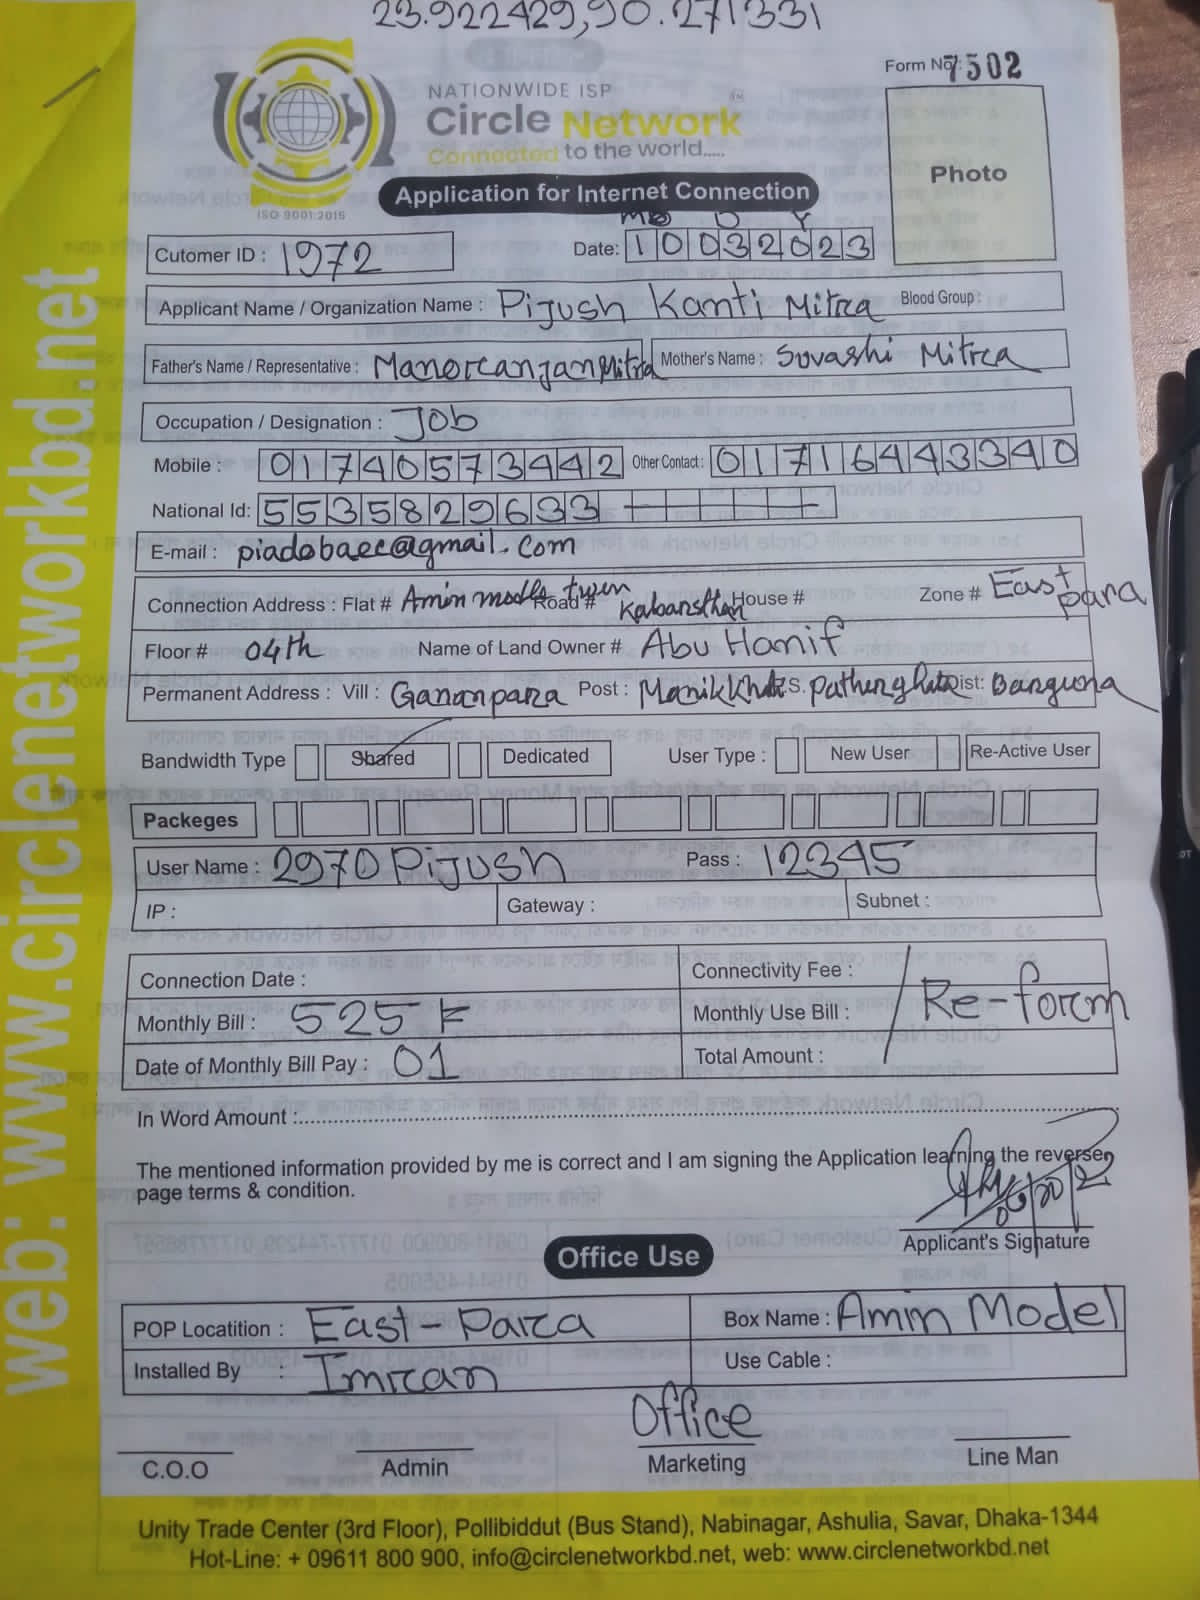 23.922429,90.271331
Form No: 7502
NATIONWIDE ISP
Circle Network
Connected to the world.....
ISO 9001:2015
Photo
Application for Internet Connection
D Y
Cutomer ID : 1972 Date: 10032023
Applicant Name / Organization Name : Pijush Kanti Mitra Blood Group :
Father's Name / Representative : Manoranjan Mitra Mother's Name : Sovashi Mitra
Occupation / Designation : Job
Mobile : 01740573442 Other Contact : 01716443340
National Id: 5535829633
E-mail : piadobaec@gmail.com
Connection Address : Flat # Amin Road # Kabarsthan House # Zone # East para
Floor# 04th Name of Land Owner # Abu Hanif
Permanent Address : Vill : Post : P.S. Dist:
Bandwidth Type Shared Dedicated User Type : New User Re-Active User
Packeges
User Name : 2970 Pijush Pass : 12345
IP : Gateway : Subnet :
Connection Date : Connectivity Fee :
Monthly Bill : 525 Monthly Use Bill : Re-form
Date of Monthly Bill Pay : 01 Total Amount :
In Word Amount :
The mentioned information provided by me is correct and I am signing the Application learning the reverse
page terms & condition.
Applicant's Signature
Office Use
POP Locatition : East-Para Box Name : Amin Model
Installed By : Imran Use Cable :
Office
C.O.O Admin Marketing Line Man
Unity Trade Center (3rd Floor), Pollibiddut (Bus Stand), Nabinagar, Ashulia, Savar, Dhaka-1344
Hot-Line: + 09611 800 900, info@circlenetworkbd.net, web: www.circlenetworkbd.net
web: www.circlenetworkbd.net